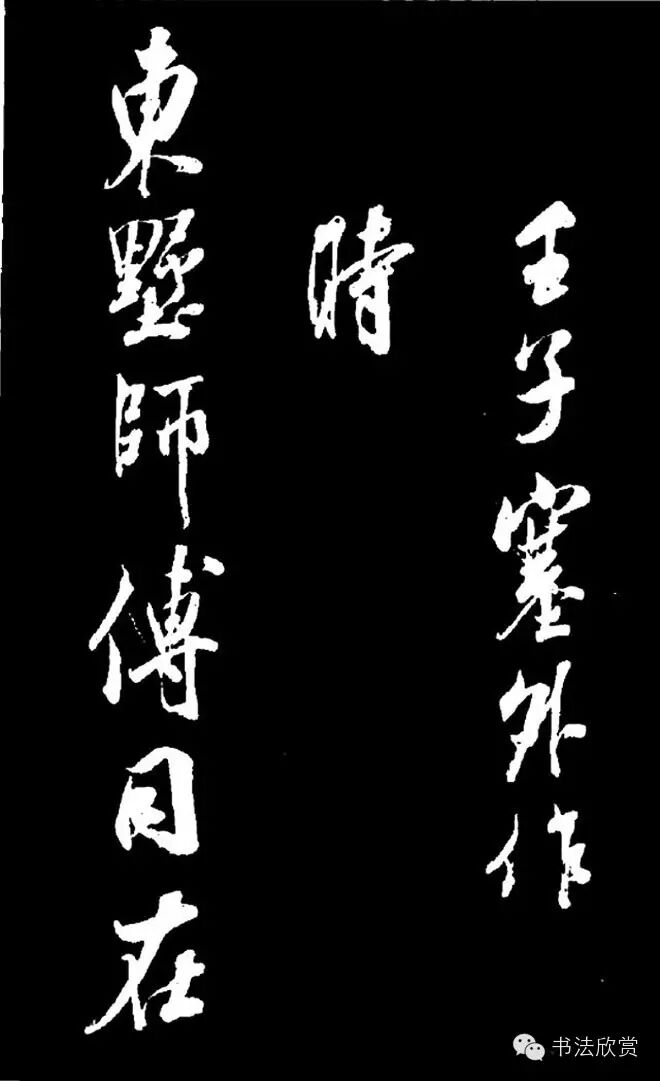 壬子塞外作
時
東墅師傅同在
书法欣赏